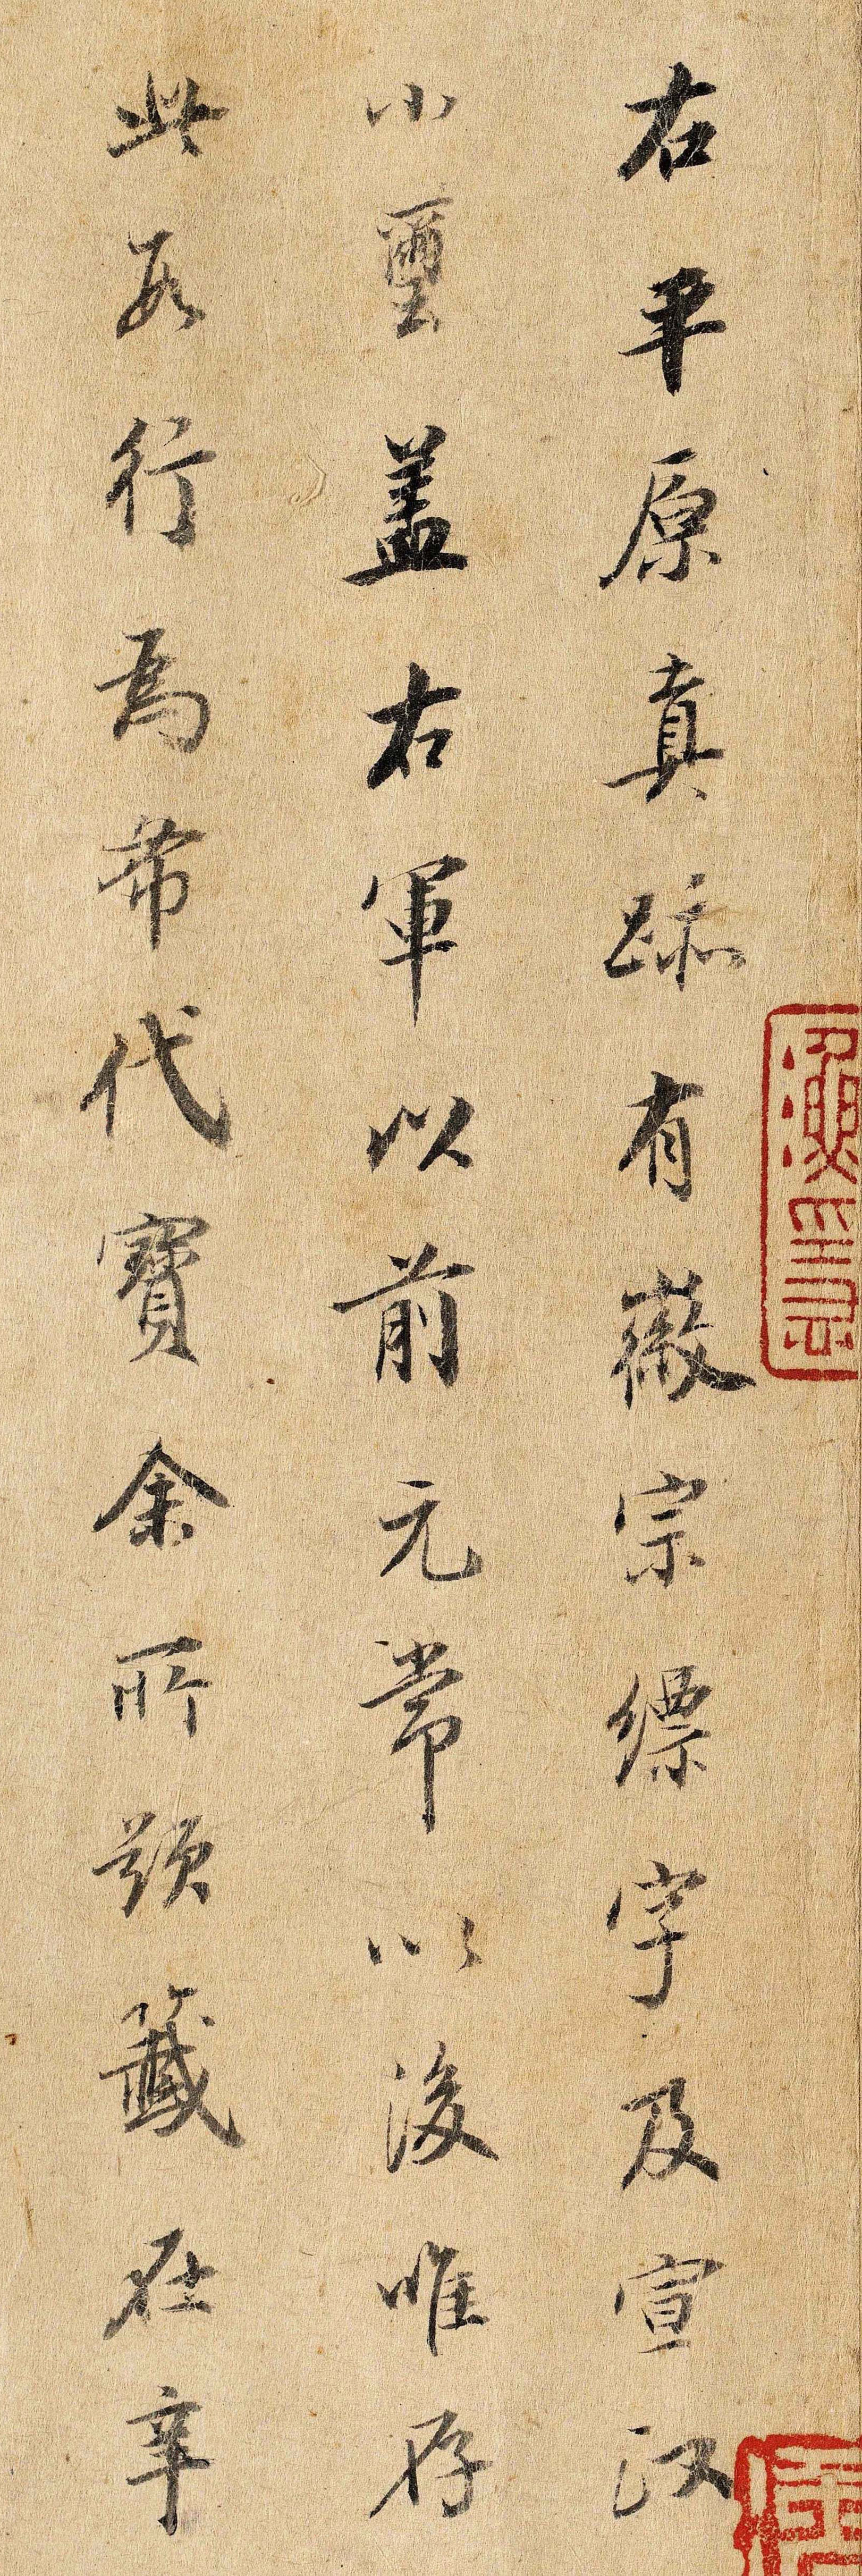 右平原真跡有徽宗縹字及宣政
小璽蓋右軍以前元常以後唯存
此數行為希代寶余所題籤在辛